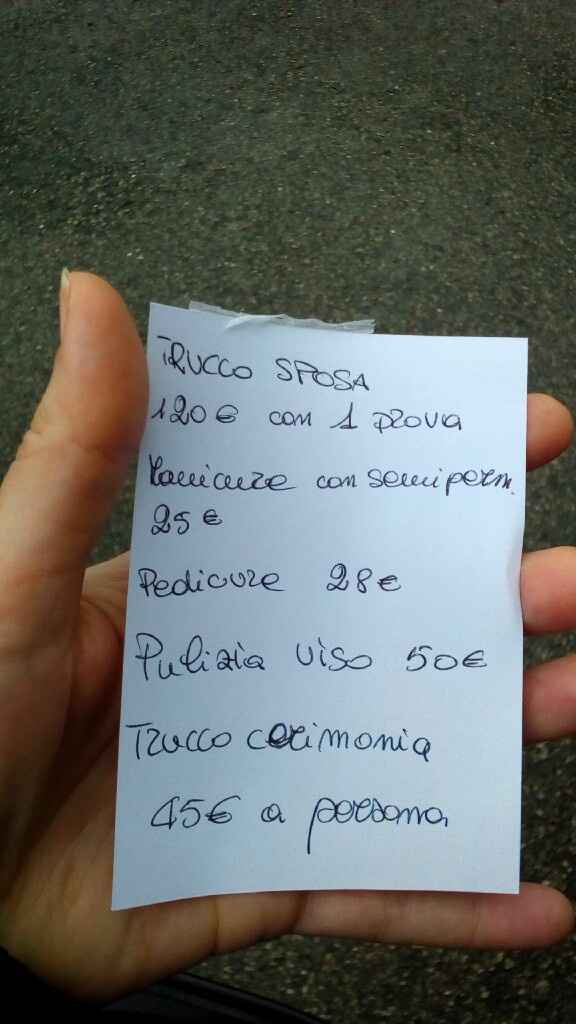 TRUCCO SPOSA
120€ con 1 prova
Manicure con semiperm.
25€
Pedicure 28€
Pulizia viso 50€
Trucco cerimonia
45€ a persona